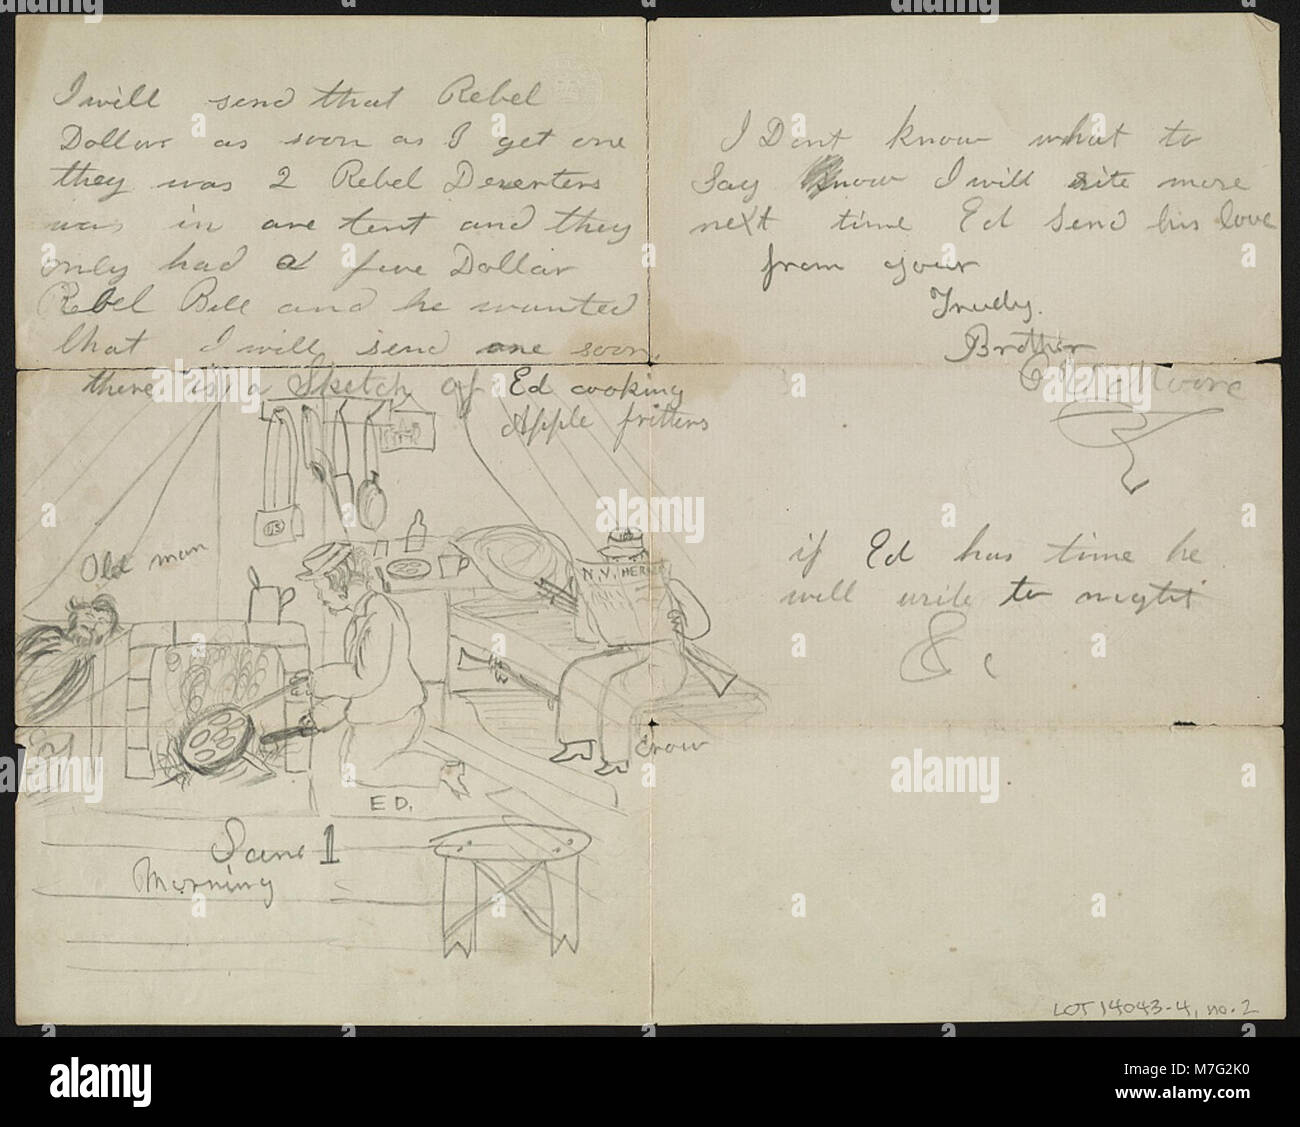 I will send that Rebel
Dollar as soon as I get one
they was 2 Rebel Deserters
was in are tent and they
only had a five Dollar
Rebel Bill and he wanted
that I will send one soon.
there is a Sketch of Ed cooking
Apple fritters
US
Old man
N.Y. HERALD
Crow
ED.
Jan 1
Morning
I Dont know what to
Say know I will rite more
next time Ed Send his love
from your
Truely.
Brother
Moore
if Ed has time he
will write to night
& c
LOT 14043-4, no. 2
a alamy
alamy
Image ID: M7G2K0
www.alamy.com